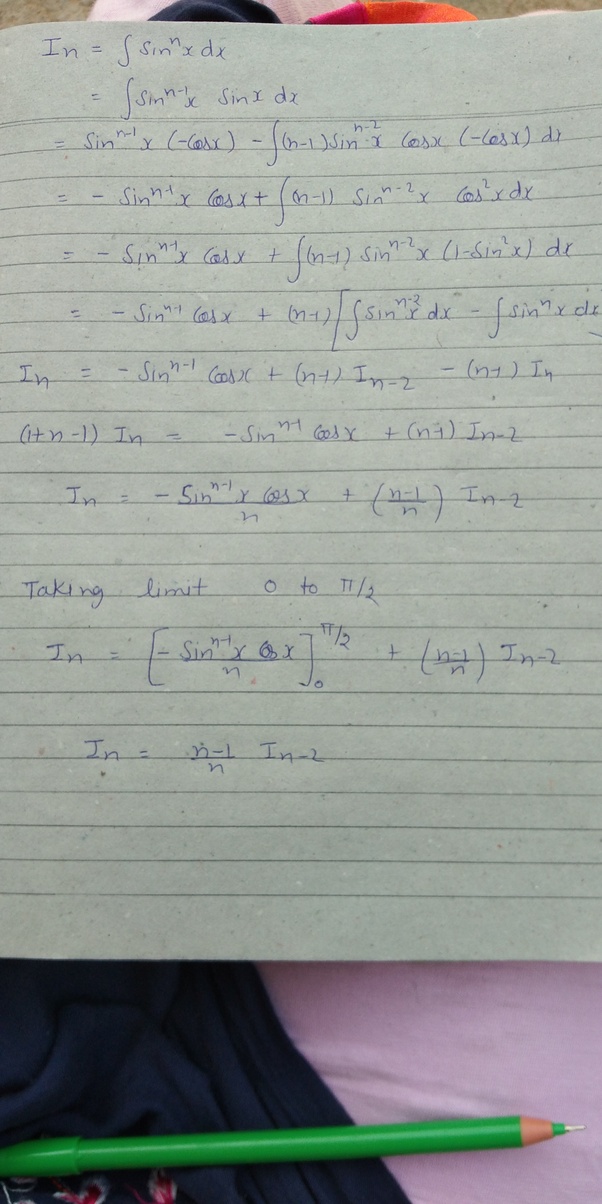 Iₙ = ∫ Sinⁿx dx
= ∫ Sinⁿ⁻¹x Sinx dx
= Sinⁿ⁻¹x (-Cosx) - ∫(n-1) Sinⁿ⁻²x Cosx (-Cosx) dx
= - Sinⁿ⁻¹x Cosx + ∫(n-1) Sinⁿ⁻²x Cos²x dx
= - Sinⁿ⁻¹x Cosx + ∫(n-1) Sinⁿ⁻²x (1-Sin²x) dx
= - Sinⁿ⁻¹ Cosx + (n-1) [∫ Sinⁿ⁻²x dx - ∫ Sinⁿx dx
Iₙ = - Sinⁿ⁻¹ Cosx + (n-1) Iₙ₋₂ - (n-1) Iₙ
(1+n-1) Iₙ = - Sinⁿ⁻¹ Cosx + (n-1) Iₙ₋₂
Iₙ = - Sinⁿ⁻¹x Cosx / n + (n-1 / n) Iₙ₋₂
Taking limit 0 to π/2
Iₙ = [- Sinⁿ⁻¹x Cosx / n]₀^π/2 + (n-1 / n) Iₙ₋₂
Iₙ = n-1 / n Iₙ₋₂